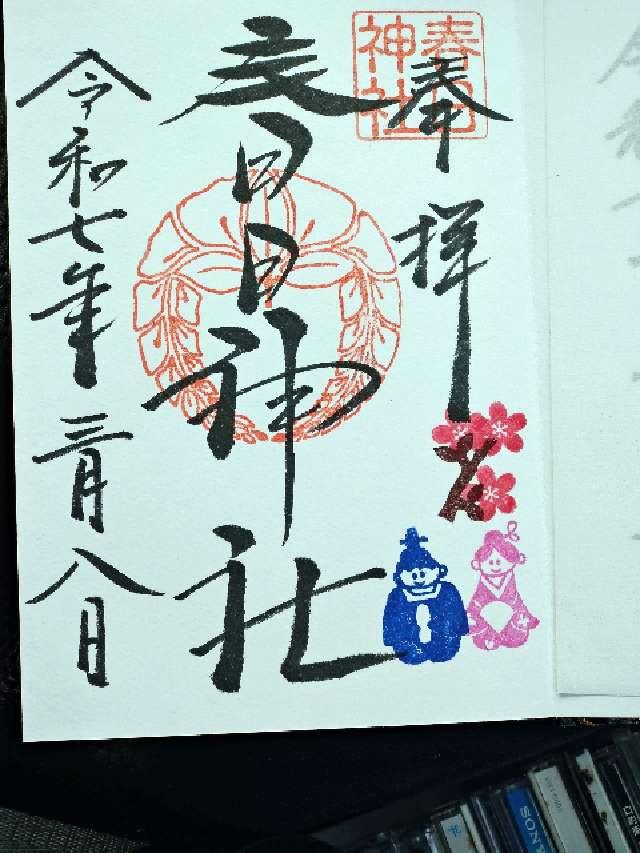 奉拝
春日神社
春日神社
令和七年三月八日
SONY